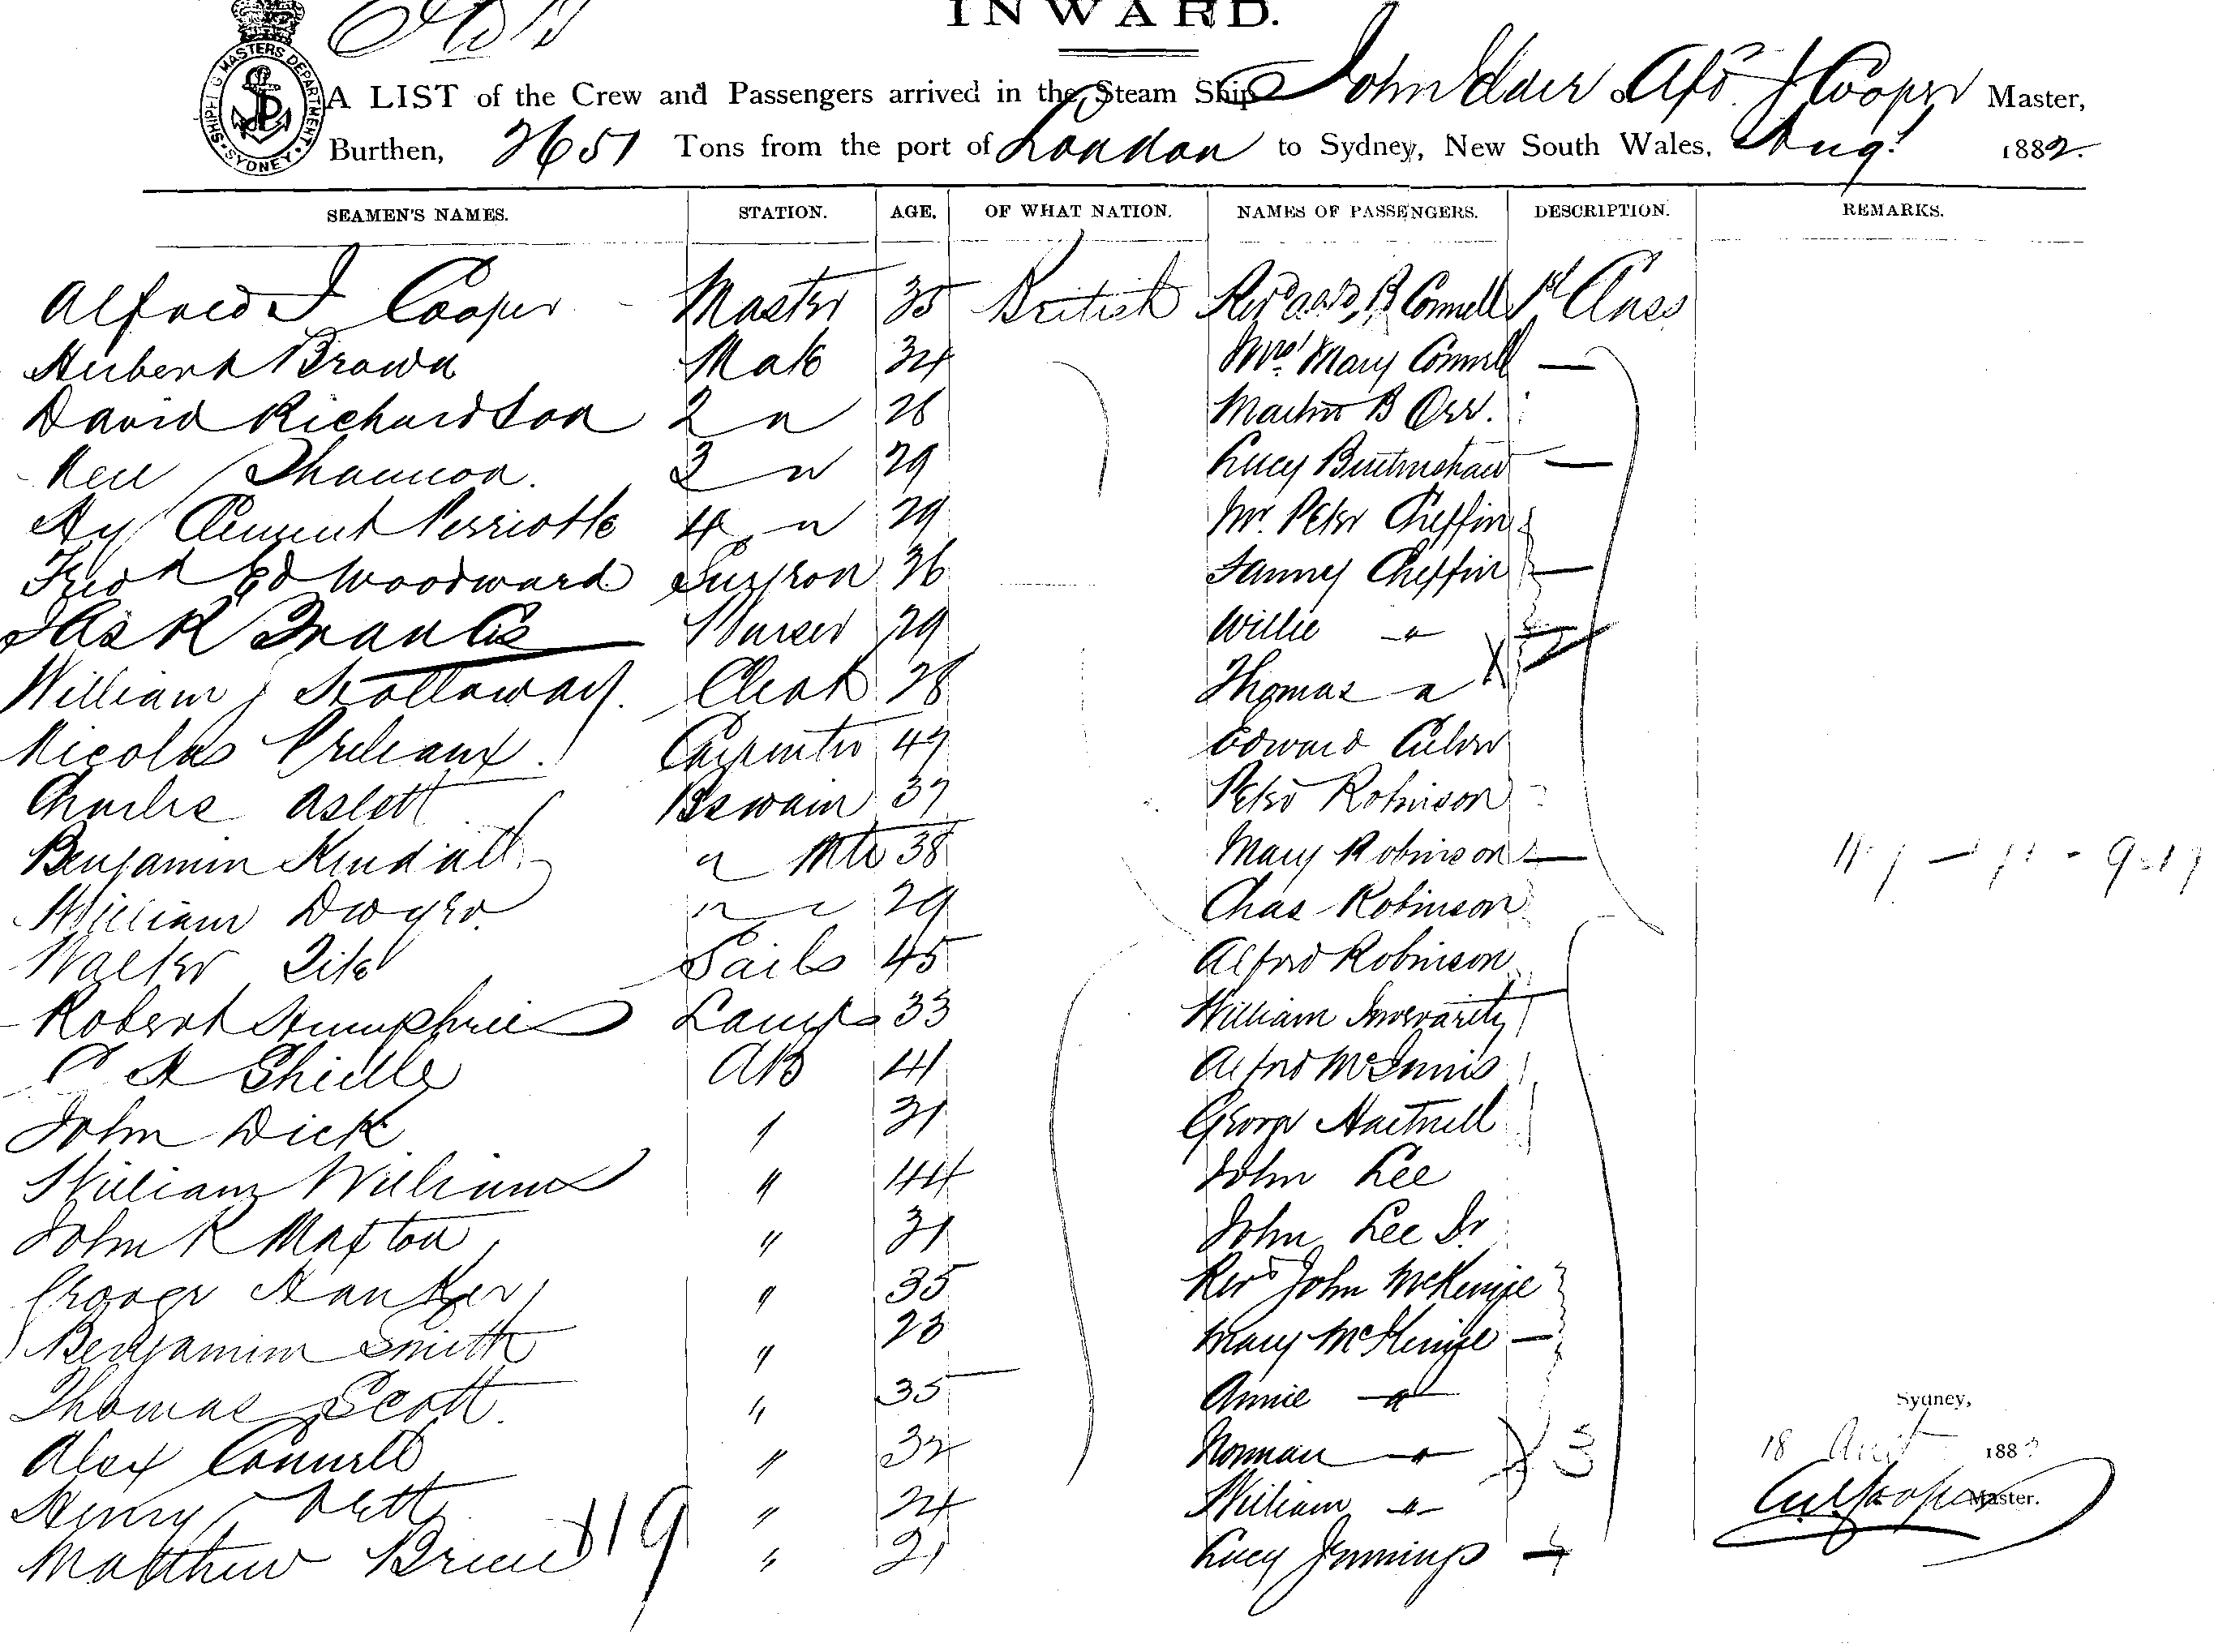 INWARD.
SHIPPING MASTERS DEPARTMENT. SYDNEY.
A LIST of the Crew and Passengers arrived in the Steam Ship John Elder of Alfd. J Cooper Master,
Burthen, 3651 Tons from the port of London to Sydney, New South Wales, Augt 1882.
SEAMEN'S NAMES. STATION. AGE. OF WHAT NATION. NAMES OF PASSENGERS. DESCRIPTION. REMARKS.
Alfred J Cooper Master 35 British Revd B Connell 1st Class
Hubert Brown Mate 34 Mrs Mary Connell —
David Richardson 2 " 28 B Orr.
Shannon. 3 " 29 Lucy
Hy Clement 4 " 29 Mr. Peter Cheffin
Fredk Ed Woodward Surgeon 36 Fanny Cheffin —
Jas R Francis Purser 29 Willie "
William J Clerk 28 Thomas "
Nicolas Carpenter 49 Edward
Charles Aslett Bswain 37 Peter Robinson
Benjamin Kendall " Mte 38 Mary Robinson —
William Dwyer " " 29 Chas Robinson
Walter Sails 45 Alfred Robinson
Robert Humphries Lamps 33 William Inverarity
C A AB 41 Alfred McInnis
John Dick " 31 George Hartnell
William Williams " 44 John Lee
John R Maxton " 31 John Lee Jr
George " 35 Revd John McKenzie
Benjamin Smith " 23 Mary McKenzie —
Thomas Scott " 35 Annie "
Sydney,
Alex Connell " 32 Norman "
18 Augt 188
Henry " 24 William "
Master.
Matthew 119 " 21 Lucy Jennings —